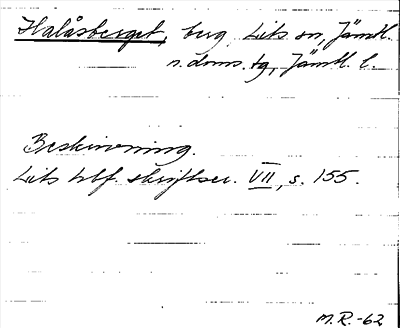 Halåsberget, berg, Lits sn, Jämtl.
n. doms. tg, Jämtl. l.
Beskrivning.
Lits hbf. skriftser. VII, s. 155.
M.R.-62